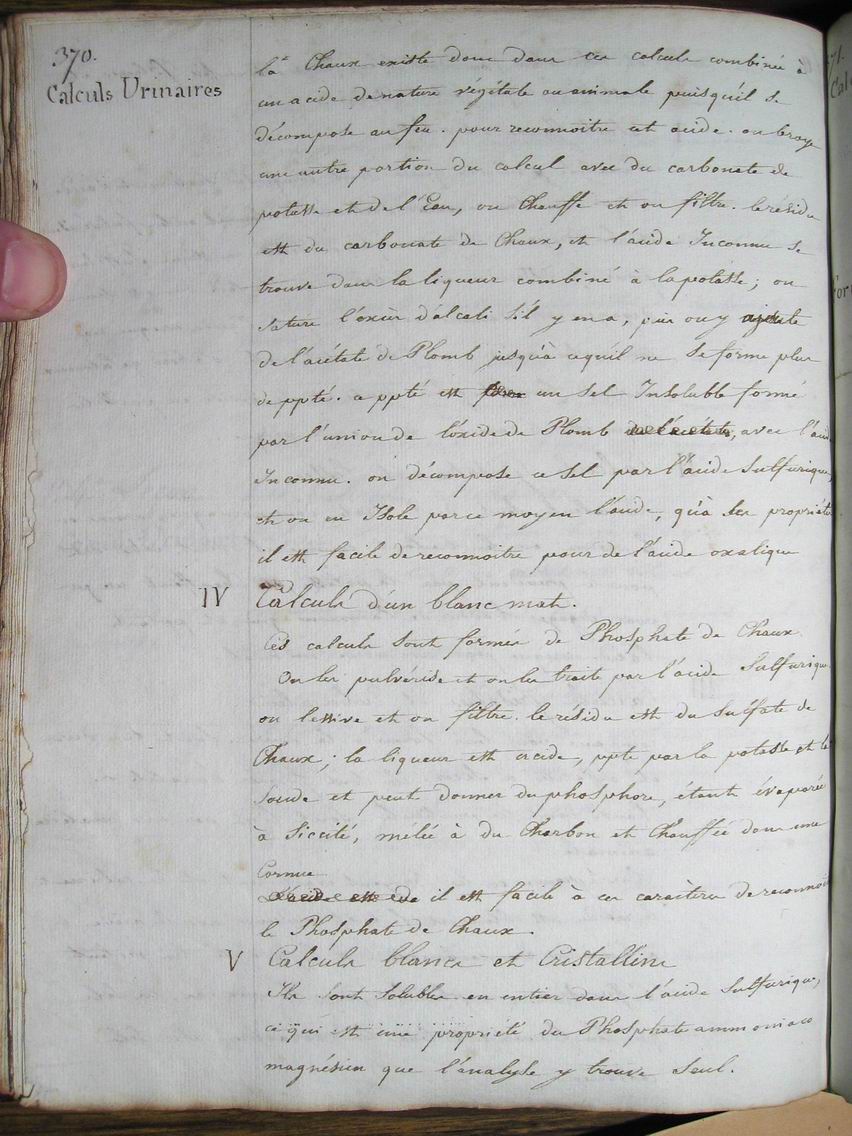 370.
Calculs Urinaires
la Chaux existe donc dans ces calculs combinée à
un acide de nature végétale ou animale puisqu'il se
décompose au feu. pour reconnoitre cet acide. on broye
une autre portion du calcul avec du carbonate de
potasse et de l'Eau, on Chauffe et on filtre. le résidu
est du carbonate de Chaux, et l'acide Inconnu se
trouve dans la liqueur combiné à la potasse ; on
sature l'excès d'alcali s'il y en a, puis on y ajoute
de l'acétate de Plomb jusqu'à ce qu'il ne se forme plus
de ppté. ce ppté est un sel Insoluble formé
par l'union de l'oxide de Plomb de l'acétate, avec l'acide
Inconnu. on décompose ce sel par l'acide Sulfurique,
et on en Isole par ce moyen l'acide, qu'à ses propriétés
il est facile de reconnoitre pour de l'acide oxalique
IV Calculs d'un blanc mat.
Ces calculs sont formés de Phosphate de Chaux.
On les pulvérise et on les traite par l'acide Sulfurique
on lessive et on filtre. le résidu est du sulfate de
Chaux ; la liqueur est acide, ppte par la potasse et la
soude et peut donner du phosphore, étant évaporée
à siccité, mêlée à du Charbon et Chauffée dans une
Cornue
il est facile à ces caractères de reconnoitre
le Phosphate de Chaux.
V Calculs blancs et Cristallins
Ils sont solubles en entier dans l'acide Sulfurique,
ce qui est une propriété du Phosphate ammoniaco
magnésien que l'analyse y trouve seul.